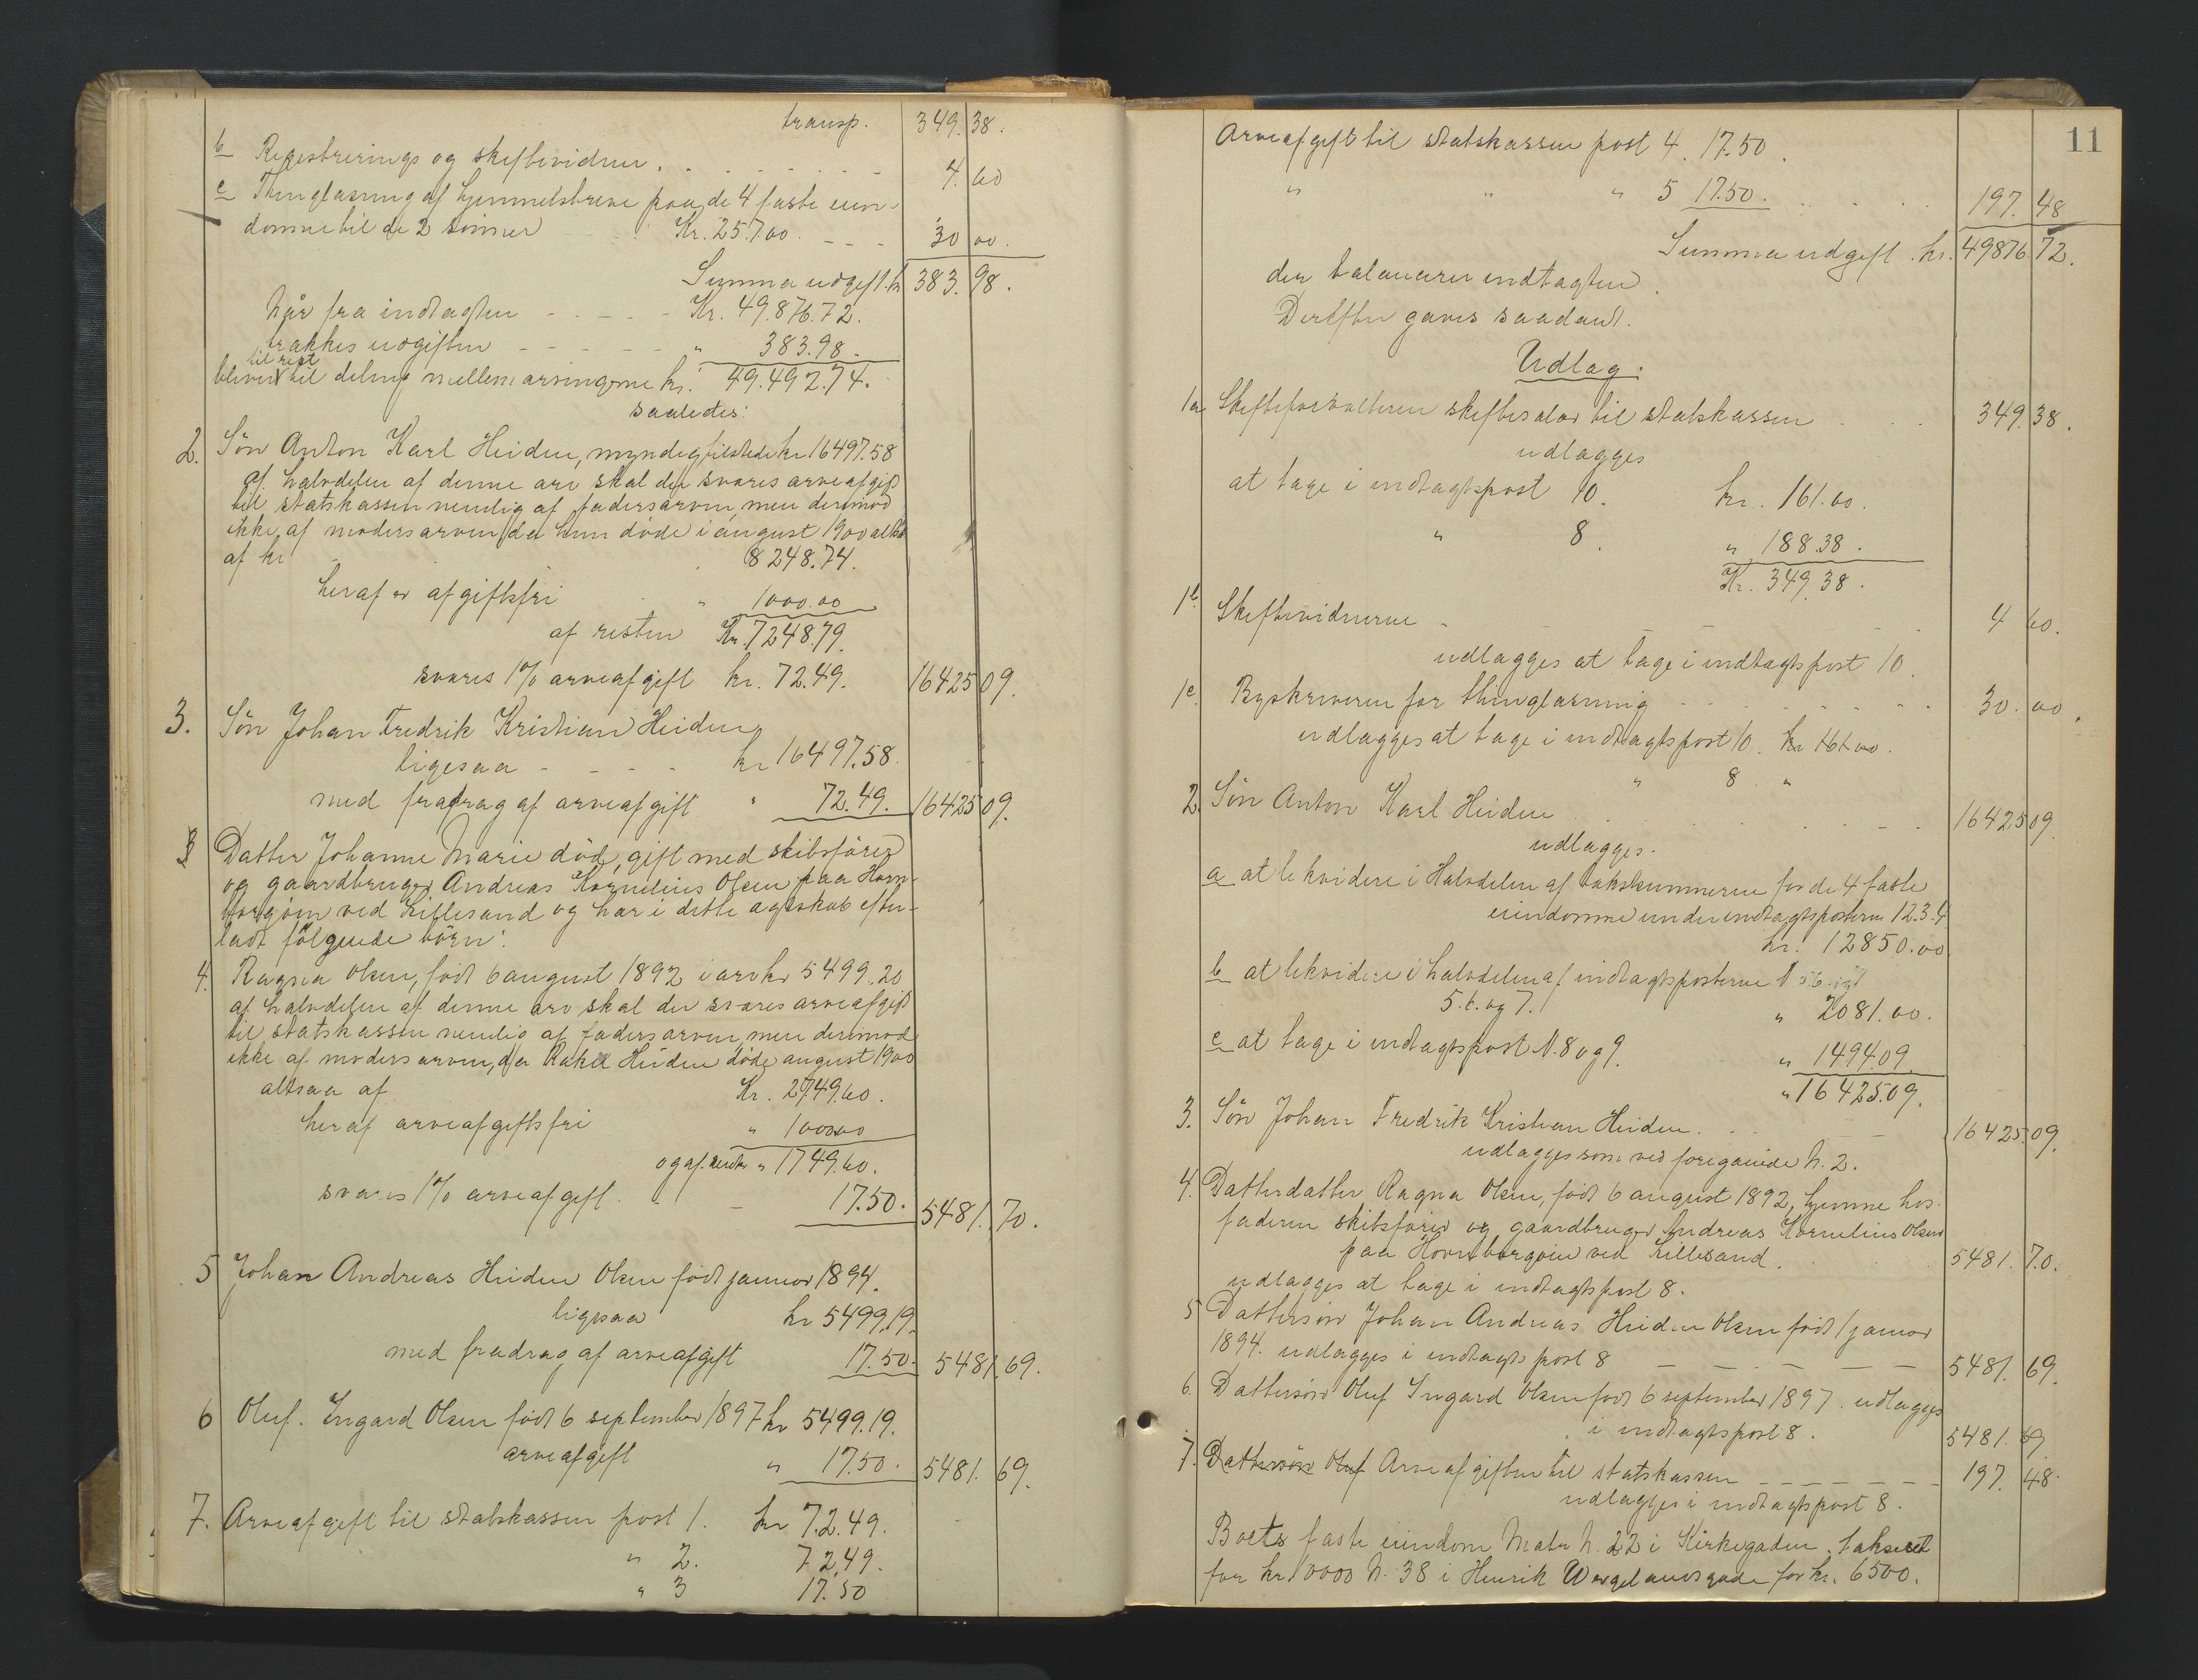 transp. 349.38.
b Registrerings og skiftevidner. 4.60
c Thinglæsning af hjemmelsbreve paa de 4 faste eien-
domme til de 2 sönner Kr. 25.700. 30 00.
Summa udgift. kr 383.98.
Når fra indtægten Kr. 49.876.72.
trækkes udgiften " 383.98.
til rest
bliver til deling mellem arvingerne kr. 49.492.74.
saaledes:
2. Sön Anton Karl Heiden, myndig tilstede kr 16497.58
af halvdelen af denne arv skal der svares arveafgift
til statskassen nemlig af fadersarven, men derimod
ikke af modersarven da hun döde i august 1900 altsaa
af kr 8248.74.
heraf er afgiftsfri " 1000.00
af resten Kr. 7248.79.
svares 1% arveafgift kr. 72.49. 16425 09.
3. Sön Johan Fredrik Kristian Heiden
ligesaa kr 16497.58.
med fradrag af arveafgift " 72.49. 16425 09.
3 Datter Johanne Marie död, gift med skibsförer
og gaardbruger Andreas Kornelius Olsen paa Horn-
borgöen ved Lillesand og har i dette ægteskab efter-
ladt fölgende börn:
4. Ragna Olsen, födt 6 august 1892 i arv kr 5499.20
af halvdelen af denne arv skal der svares arveafgift
til statskassen nemlig af fadersarven men derimod
ikke af modersarven, da Rakel Heiden döde august 1900
altsaa af Kr. 2749.60.
heraf arveafgiftsfri " 1000.00
og af resten " 1749.60.
svares 1% arveafgift. 17.50. 5481.70.
5 Johan Andreas Heiden Olsen födt januar 1894.
ligesaa kr 5499.19.
med fradrag af arveafgift 17.50. 5481.69.
6 Oluf. Ingard Olsen födt 6 september 1897 kr 5499.19.
arveafgift " 17.50. 5481.69.
7. Arveafgift til statskassen post 1. kr 72.49.
" 2. 72.49.
" 3 17.50
11
Arveafgift til statskassen post 4. 17.50.
" " " 5 17.50. 197.48
Summa udgift. kr. 49876 72.
der balancerer indtægten.
Derefter gaves saadant.
Udlæg.
1a Skifteforvalteren skiftesalær til statskassen 349.38.
udlægges
at tage i indtægtspost 10. kr. 161.00.
" 8. " 188.38.
Kr. 349.38.
1b Skiftevidnerne 4 60.
udlægges at tage i indtægtspost 10.
1c. Byskriveren for thinglæsning 30.00.
udlægges at tage i indtægtspost 10. kr 161.00.
" 8. "
2. Sön Anton Karl Heiden 16425 09.
udlægges.
a at likvidere i Halvdelen af takstsummerne for de 4 faste
eiendomme under indtægtsposterne 1 2.3.4
kr. 12850.00
b at likvidere i halvdelen af indtægtsposterne N 5 6. og
5.6. og 7. " 2081.00.
c at tage i indtægtspost N. 8 og 9. " 1494.09.
" 16425.09.
3. Sön Johan Fredrik Kristian Heiden. 16425.09.
udlægges som ved foregaaende N. 2.
4. Datterdatter Ragna Olsen, födt 6 august 1892, hjemme hos
faderen skibsförer og gaardbruger Andreas Kornelius Olsen
paa Hornborgöen ved Lillesand. 5481.70.
udlægges at tage i indtægtspost 8.
5 Dattersön Johan Andreas Heiden Olsen födt 1 januar
1894. udlægges i indtægtspost 8 5481.69.
6. Dattersön Oluf Ingard Olsen födt 6 september 1897. udlægges
i indtægtspost 8. 5481.69
7. Dattersön Oluf Arveafgiften til statskassen 197.48.
udlægges i indtægtspost 8.
Boets faste eiendom Matr N. 22 i Kirkegaden. takseret
for kr 10000 N. 38 i Henrik Wergelandsgade for kr. 6500.